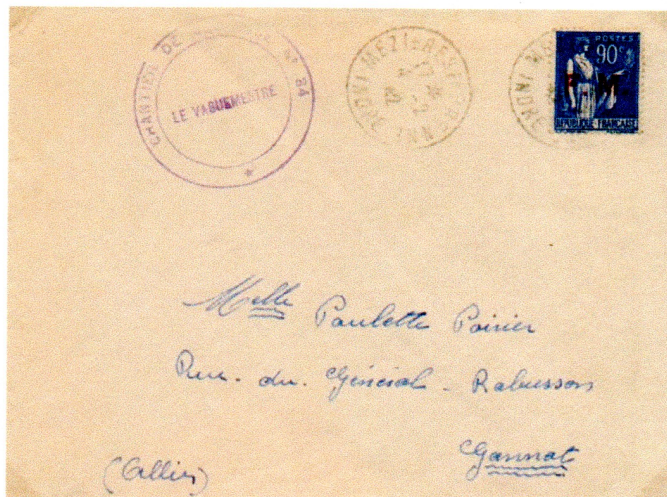 CHANTIER DE Nº 34
LE VAGUEMESTRE
MEZI
17
4 -2
POSTES
90c
F M
REPUBLIQUE FRANCAISE
Melle Paulette Poirier
Rue du Général Rabusson
Gannat
(Allier)